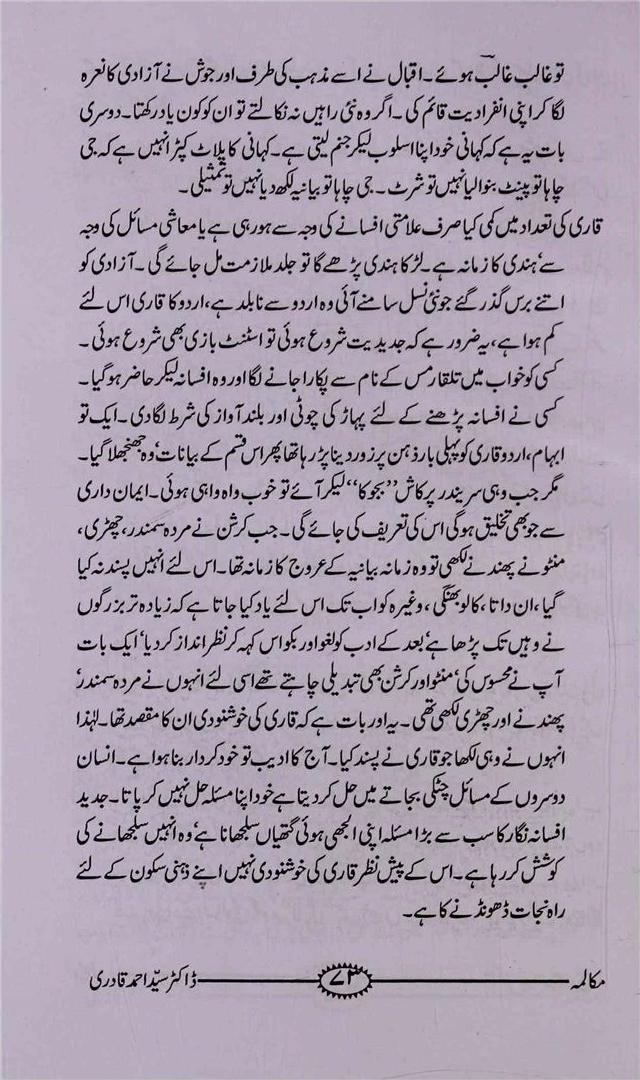 تو غالب غالب ہوئے۔ اقبال نے اسے مذہب کی طرف اور جوش نے آزادی کا نعرہ
لگا کر اپنی انفرادیت قائم کی۔ اگر وہ نئی راہیں نہ نکالتے تو ان کو کون یاد رکھتا۔ دوسری
بات یہ ہے کہ کہانی خود اپنا اسلوب لیکر جنم لیتی ہے۔ کہانی کا پلاٹ کپڑا نہیں ہے کہ جی
چاہا تو پینٹ بنوالیا نہیں تو شرٹ۔ جی چاہا تو بیانیہ لکھ دیا نہیں تو تمثیلی۔
قاری کی تعداد میں کمی کیا صرف علامتی افسانے کی وجہ سے ہو رہی ہے یا معاشی مسائل کی وجہ
سے، ہندی کا زمانہ ہے۔ لڑکا ہندی پڑھے گا تو جلد ملازمت مل جائے گی۔ آزادی کو
اتنے برس گذر گئے جو نئی نسل سامنے آئی وہ اردو سے نابلد ہے، اردو کا قاری اس لئے
کم ہوا ہے، یہ ضرور ہے کہ جدیدیت شروع ہوئی تو اسٹنٹ بازی بھی شروع ہوئی۔
کسی کو خواب میں تلقارمس کے نام سے پکارا جانے لگا اور وہ افسانہ لیکر حاضر ہو گیا۔
کسی نے افسانہ پڑھنے کے لئے پہاڑ کی چوٹی اور بلند آواز کی شرط لگا دی۔ ایک تو
ابہام، اردو قاری کو پہلی بار ذہن پر زور دینا پڑ رہا تھا پھر اس قسم کے بیانات، وہ جھنجھلا گیا۔
مگر جب وہی سریندر پرکاش ”بجوکا“ لیکر آئے تو خوب واہ واہی ہوئی۔ ایمان داری
سے جو بھی تخلیق ہوگی اس کی تعریف کی جائے گی۔ جب کرشن نے مردہ سمندر، چھڑی،
منٹو نے پھندنے لکھی تو وہ زمانہ بیانیہ کے عروج کا زمانہ تھا۔ اس لئے انہیں پسند نہ کیا
گیا، ان داتا، کالو بھنگی، وغیرہ کو اب تک اس لئے یاد کیا جاتا ہے کہ زیادہ تر بزرگوں
نے وہیں تک پڑھا ہے، بعد کے ادب کو لغو اور بکواس کہہ کر نظر انداز کر دیا، ایک بات
آپ نے محسوس کی، منٹو اور کرشن بھی تبدیلی چاہتے تھے اسی لئے انہوں نے مردہ سمندر،
پھندنے اور چھڑی لکھی تھی۔ یہ اور بات ہے کہ قاری کی خوشنودی ان کا مقصد تھا۔ لہٰذا
انہوں نے وہی لکھا جو قاری نے پسند کیا۔ آج کا ادیب تو خود کردار بنا ہوا ہے۔ انسان
دوسروں کے مسائل چٹکی بجاتے میں حل کر دیتا ہے خود اپنا مسئلہ حل نہیں کر پاتا۔ جدید
افسانہ نگار کا سب سے بڑا مسئلہ اپنی الجھی ہوئی گتھیاں سلجھانا ہے، وہ انہیں سلجھانے کی
کوشش کر رہا ہے۔ اس کے پیش نظر قاری کی خوشنودی نہیں اپنے ذہنی سکون کے لئے
راہ نجات ڈھونڈنے کا ہے۔
مکالمہ ۷۳ ڈاکٹر سیّد احمد قادری